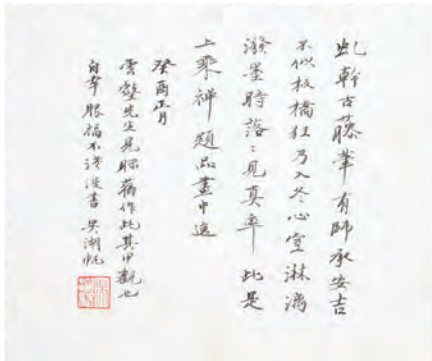 虬幹古藤筆有師承安吉
不似板橋狂乃入冬心室淋漓
潑墨時落々見真率此是
上乘禪題品畫中逸
癸酉正月
雲壑先生見眎舊作此其甲觀也
自幸眼福不淺漫書 吳湖帆